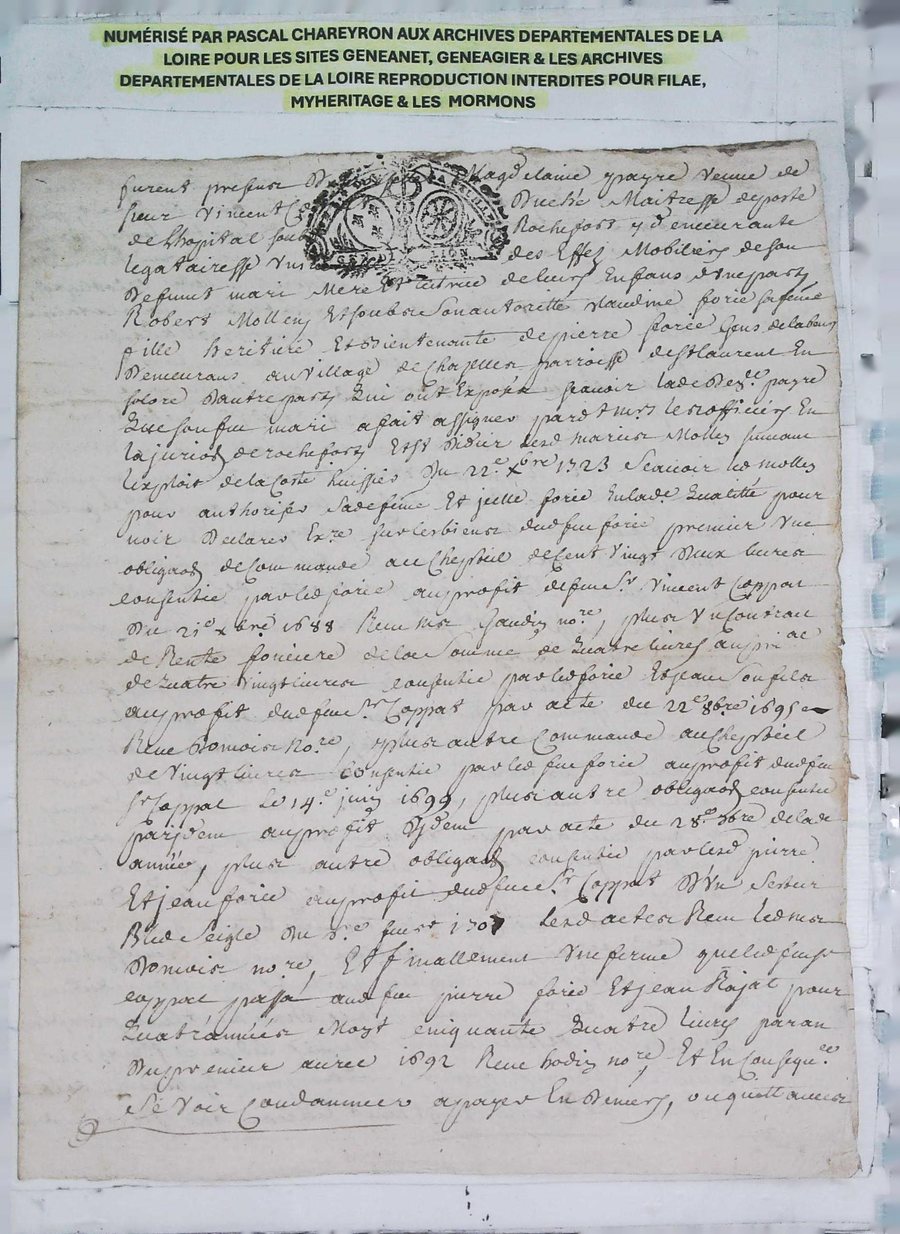 NUMÉRISÉ PAR PASCAL CHAREYRON AUX ARCHIVES DEPARTEMENTALES DE LA
LOIRE POUR LES SITES GENEANET, GENEAGIER & LES ARCHIVES
DEPARTEMENTALES DE LA LOIRE REPRODUCTION INTERDITES POUR FILAE,
MYHERITAGE & LES MORMONS
furent presens Magdelaine payre veuve de
sieur Vincent Duché Maitresse de poste
de Lhopital sou Rochefort y demeurante
legatairesse des Effez Mobiliers de son
Defunt mari Mere Et tutrice de leurs Enfans d'une part
Robert Mollen Et soubs son autoritté Claudine forié sa feme
fille heritiere Et Bientenante de pierre forié
Demeurans au village de Chazelles parroisse de St laurent En
solore D'autre part Qui ont Exposé scavoir lade payre
Que son feu mari a fait assigner pardt mrs les officiers En
la jurion de rochefort mariés Molles suivant
lexploit de la Coste huissier Du 22e xbre 1723 Scavoir led molles
pour authoriser sade feme Et jcelle forié En lade Qualitté pour
voir Declarer Exre sur les biens dud feu forié premier une
obligaon de Commande au Chepteil de Cent Vingt Deux livres
consentie par led forié au profit de feu sr Vincent Coppat
Du 21e xbre 1688 Receu Me Gaudin nore, plus Un Contrat
de Rente fonciere de la Somme de Quatre livres au pnal
de Quatre Vingt livres consentie par led forié Et jean Son fils
au proffit dud feu Sr Coppat par acte du 22e 8bre 1695
Receu Bomois Nore, plus autre Commande au Cheptéil
de Vingt livres Consentie par led feu forié au profit dud feu
Sr Coppat Le 14e juin 1699, plus autre obligaon consentie
par jdem au profit Jdem par acte du 28e lade
année, plus autre obligaon consentie par lesd pierre
Et jean forié au profit dud feu Sr Coppat D'Un Sestier
Bled Seigle Du lesd actes Receu led me
Bomois nore, Et finallement Une ferme que led feu sr
coppat passa aud feu pierre forié Et jean Rajat pour
Quatre années Moyt cinquante Quatre livres par an
Du premier 1692 Receu hodin nore, Et En Conseqce
Se Voir Condamner a payer En Deniers, ou quittances